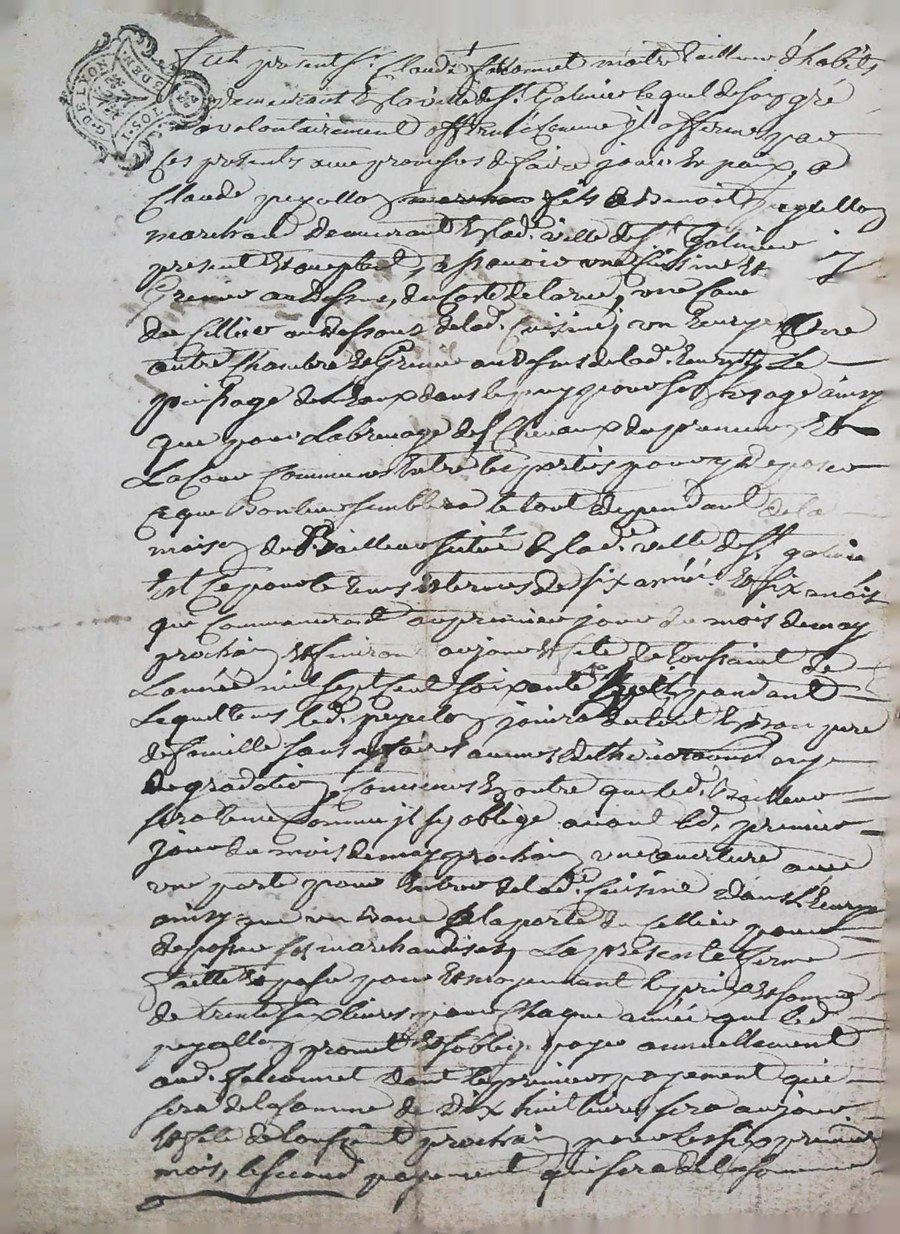 G. DE LYON
DEN
TOS
fut present Sr. Claude maitre tailleur d'habits
demeurant En la ville de St. Galmier lequel de son gré
volontairement afferme comme il afferme par
Ces presentes avec promesses de faire jouir En paix, a
Claude peyallon fils a Benoit peyallon
marchand demeurant En lad. ville de St. galmier
present Et acceptant, a sçavoir une Cuisine Et
Grenier au Dessus, du Coste de la rue, une Cave
Ou Cellier au dessous de lad. Cuisine, un une
autre Chambre Et Grenier au Dessus de lad. Le
puisage de Leaux dans le puy pour son usage ainsy
que pour Labreuvage des Chevaux du preneur, Et
La Cour Commune Entre les parties pour y Deposer
Ce que Bon leur semblera le tout dependant de la
maison du Bailleur située En lad. ville de St. galmier
Et Ce pour le tems Et termes de six années Et six mois
qui Commenceront au premier jour du mois de may
prochain Et finiront au jour Et fete de toussaint de
Lannée mil sept cent soixante pendant
Lequel tems led. peyallon jouira du tout En bon pere
de famille sans y faire aucunes ny
degradations, Convenus En outre que led. Bailleur
sera tenu Comme il sy oblige avant led. premier
jour du mois de may prochain une ouverture avec
une porte pour Entrer de lad. Cuisine dans
ainsy que un a la porte du Cellier pour
deposer ses marchandises, La presente ferme
faitte Et passé pour Et moyennant le prix Et somme
de trente six livres pour Chaque année que led.
peyallon promet Et soblige payer annuellement
aud. dont le premier payement qui
sera de la somme de Dix huit livres sera au jour
Et fete de toussaint prochain pour les six premiers
mois, le second payement qui sera de la somme